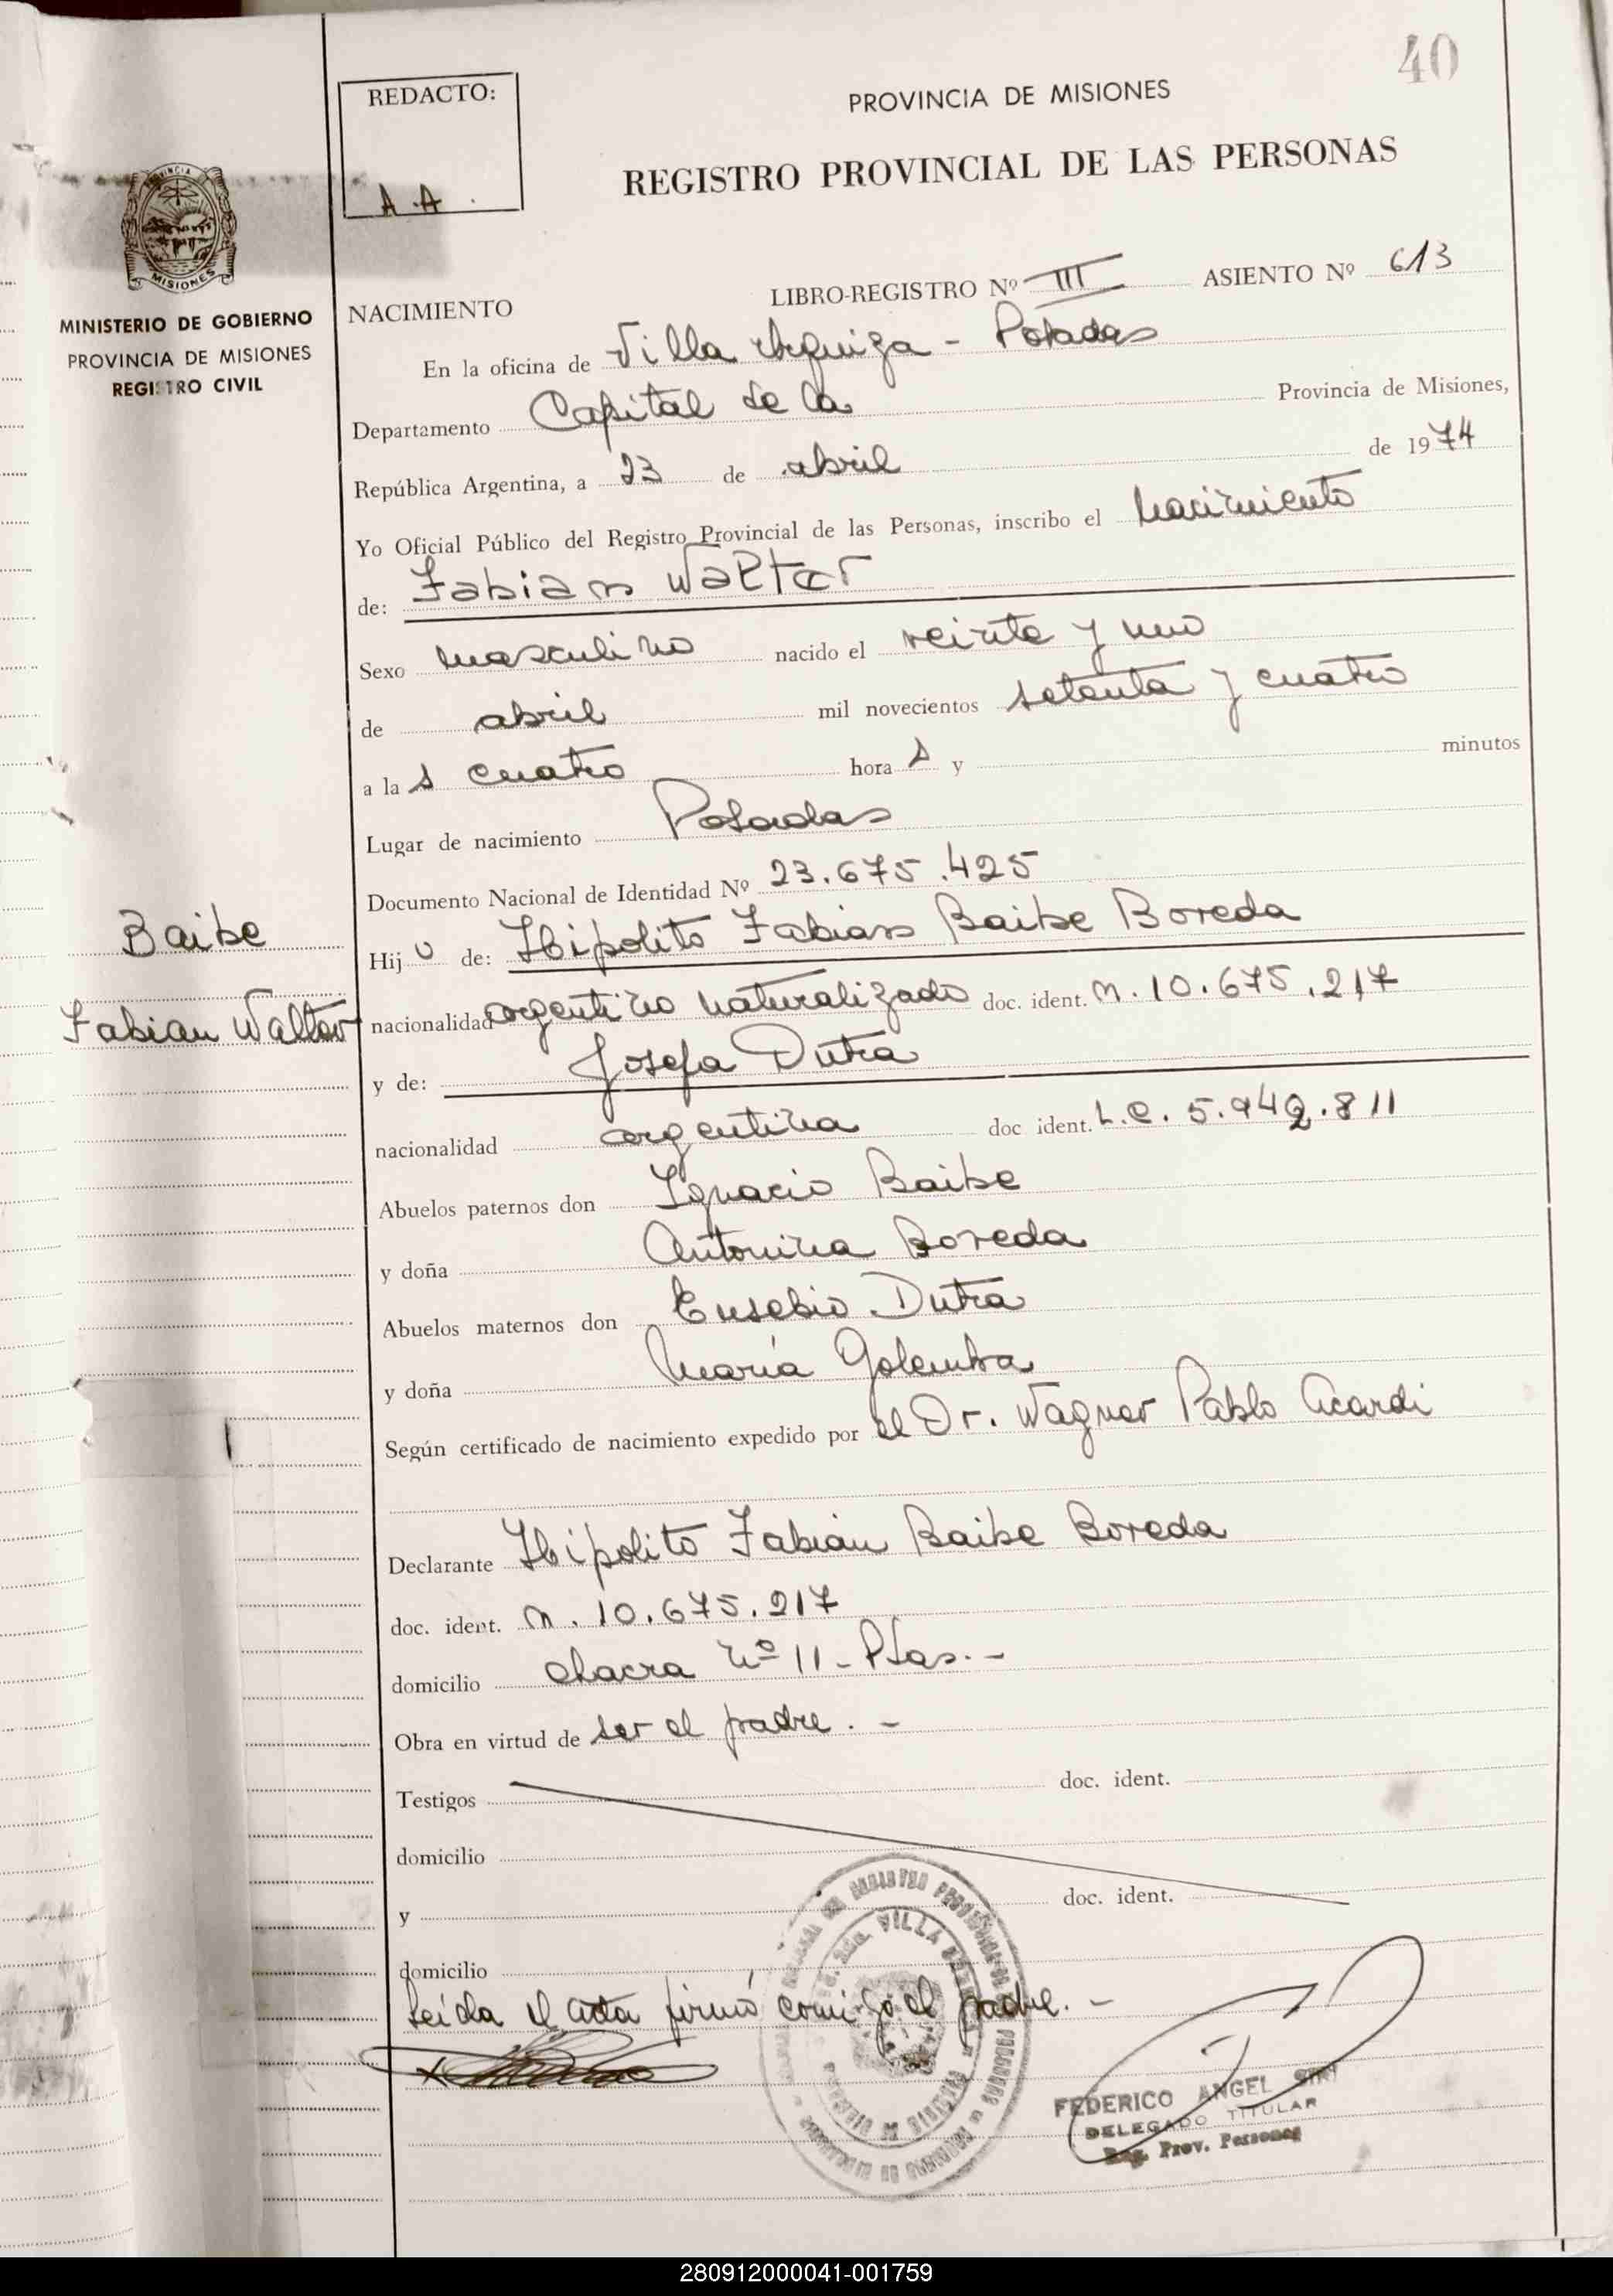 40
REDACTO:
A.A.
PROVINCIA DE MISIONES
REGISTRO PROVINCIAL DE LAS PERSONAS
PROVINCIA
MISIONES
MINISTERIO DE GOBIERNO
PROVINCIA DE MISIONES
REGISTRO CIVIL
LIBRO-REGISTRO Nº III ASIENTO Nº 613
NACIMIENTO
En la oficina de Villa Urquiza - Posadas
Departamento Capital de la Provincia de Misiones,
República Argentina, a 23 de abril de 1974
Yo Oficial Público del Registro Provincial de las Personas, inscribo el nacimiento
de: Fabian Walter
Sexo masculino nacido el veinte y uno
de abril mil novecientos setenta y cuatro
a las cuatro horas y minutos
Lugar de nacimiento Posadas
Documento Nacional de Identidad Nº 23.675.425
Baibe
Fabian Walter
Hijo de: Hipolito Fabian Baibe Boreda
nacionalidad argentino naturalizado doc. ident. M. 10.675.217
y de: Josefa Dutra
nacionalidad argentina doc ident. L.C. 5.942.811
Abuelos paternos don Ignacio Baibe
y doña Antonina Boreda
Abuelos maternos don Eusebio Dutra
y doña María Golemba
Según certificado de nacimiento expedido por el Dr. Wagner Pablo Acardi
Declarante Hipolito Fabián Baibe Boreda
doc. ident. M. 10.675.217
domicilio chacra nº 11 - Pdas. -
Obra en virtud de ser el padre. -
Testigos doc. ident.
domicilio
y doc. ident.
domicilio
Leída el acta firmó conmigo el padre. -
VILLA
FEDERICO ANGEL
DELEGADO TITULAR
Reg. Prov. Personas
280912000041-001759